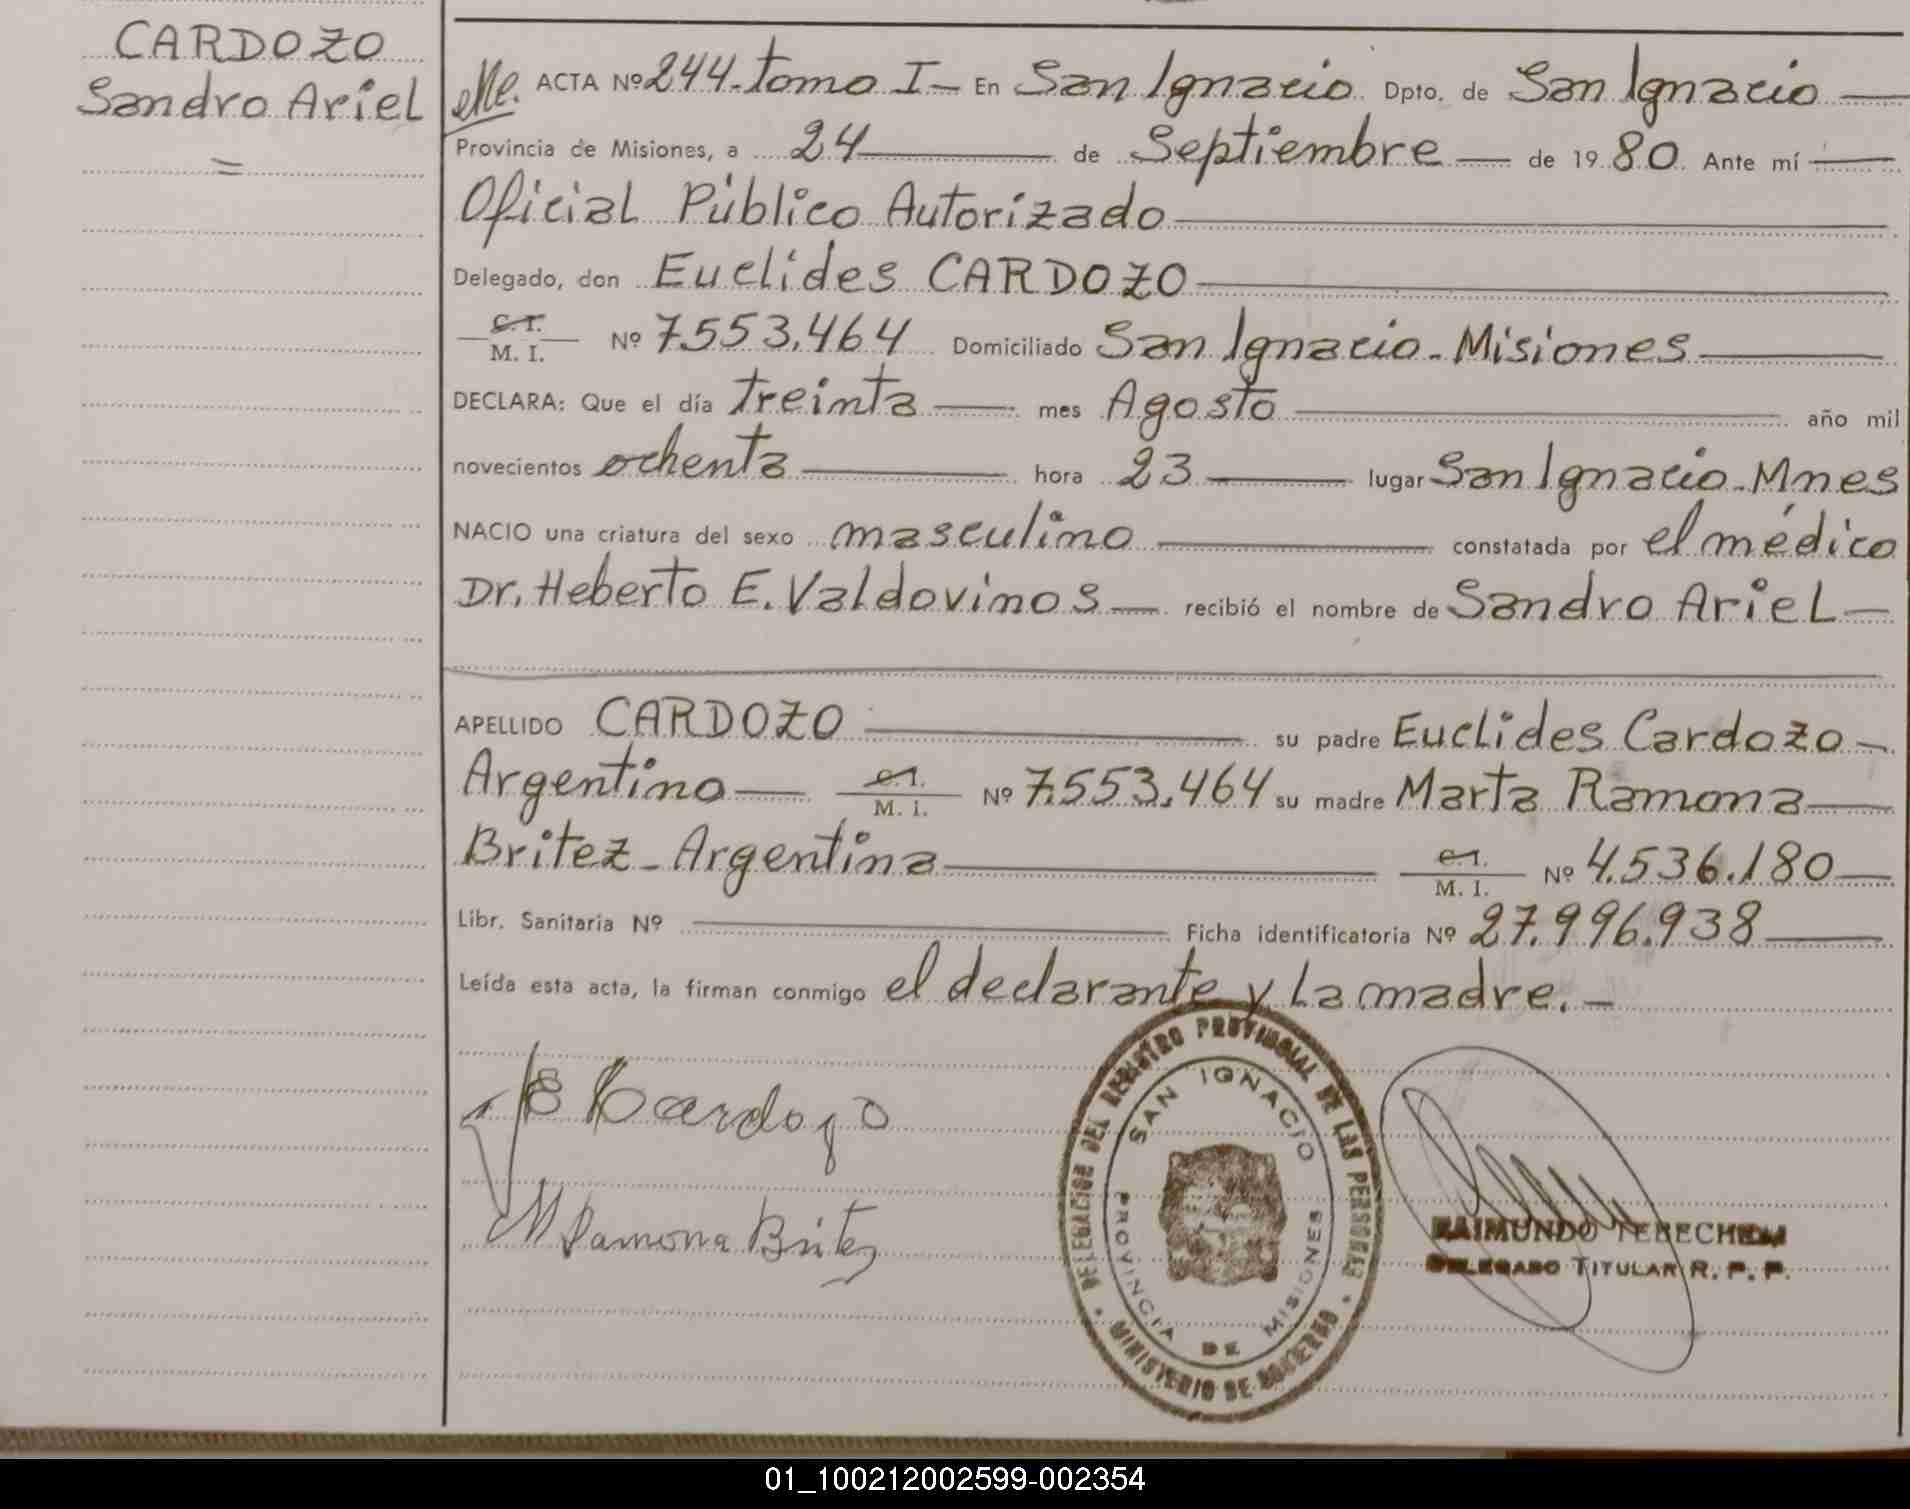 CARDOZO
Sandro Ariel
=
ACTA Nº 244. tomo I - En San Ignacio Dpto. de San Ignacio
Provincia de Misiones, a 24 de Septiembre de 1980 Ante mí
Oficial Público Autorizado
Delegado, don Euclides CARDOZO
C. I.
M. I. Nº 7.553.464 Domiciliado San Ignacio - Misiones
DECLARA: Que el día treinta mes Agosto año mil
novecientos ochenta hora 23 lugar San Ignacio - Mnes
NACIO una criatura del sexo masculino constatada por el médico
Dr. Heberto E. Valdovinos recibió el nombre de Sandro Ariel
APELLIDO CARDOZO su padre Euclides Cardozo
Argentino C. I. M. I. Nº 7.553.464 su madre Marta Ramona
Britez - Argentina C. I. M. I. Nº 4.536.180
Libr. Sanitaria Nº Ficha identificatoria Nº 27.996.938
Leída esta acta, la firman conmigo el declarante y la madre. -
E Cardozo
M Ramona Britez
DELEGACION DEL REGISTRO PROVINCIAL DE LAS PERSONAS
MINISTERIO DE GOBIERNO
SAN IGNACIO
PROVINCIA DE MISIONES
RAIMUNDO TEBECHEM
DELEGADO TITULAR R. P. P.
01_100212002599-002354